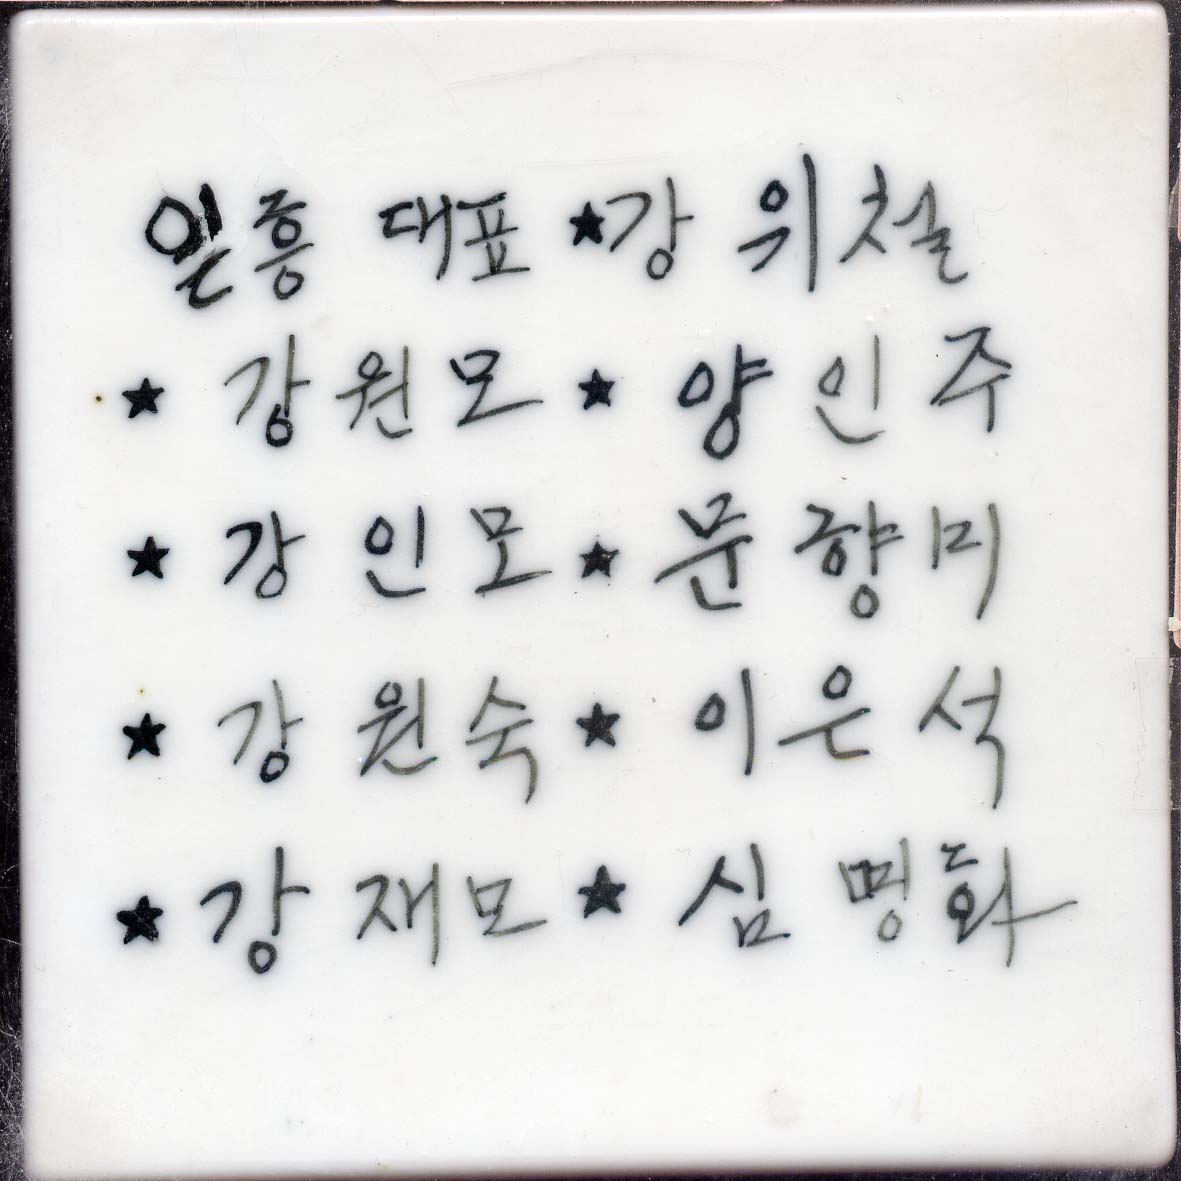 일흥 대표 ★강 위철
★ 강원모 ★ 양인주
★ 강인모 ★ 문향미
★ 강원숙 ★ 이은석
★ 강재모 ★ 심명화